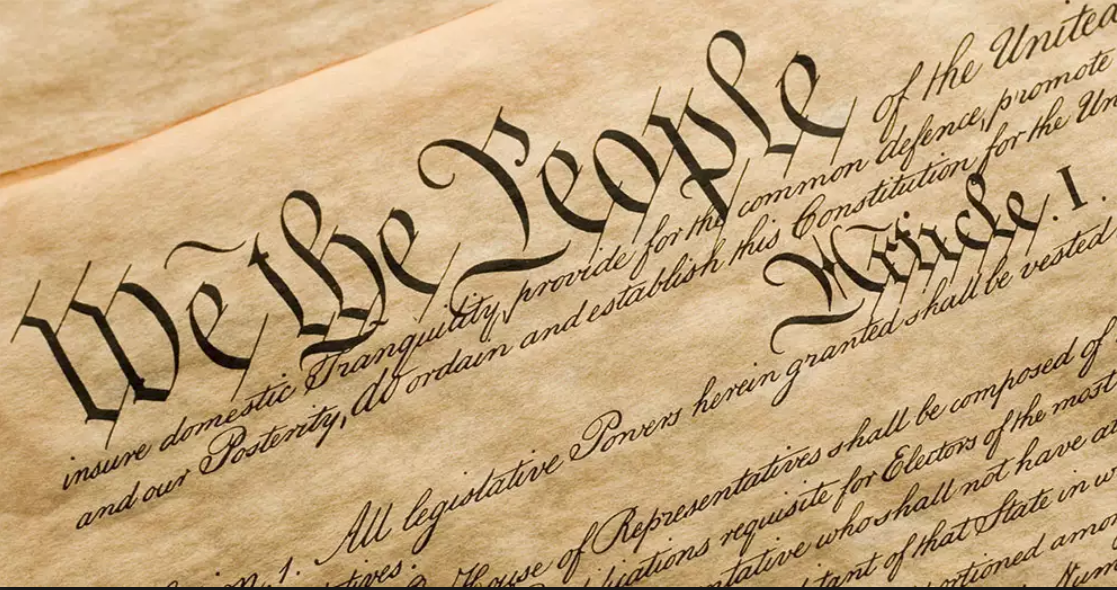 We the People of the United
insure domestic Tranquility, provide for the common defence, promote
and our Posterity, do ordain and establish this Constitution for the Un
Article. I.
n. 1. All legislative Powers herein granted shall be vested
tives.
House of Representatives shall be composed of
lications requisite for Electors of the most
ntative who shall not have at
tant of that State in w
ortioned amo
Num